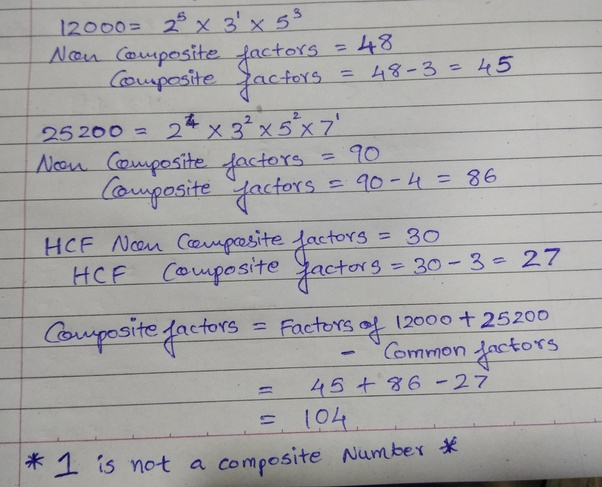 12000 = 2⁵ × 3¹ × 5³
Non Composite factors = 48
Composite factors = 48 - 3 = 45
25200 = 2⁴ × 3² × 5² × 7¹
Non Composite factors = 90
Composite factors = 90 - 4 = 86
HCF Non Composite factors = 30
HCF Composite factors = 30 - 3 = 27
Composite factors = Factors of 12000 + 25200
- Common factors
= 45 + 86 - 27
= 104
* 1 is not a composite Number *